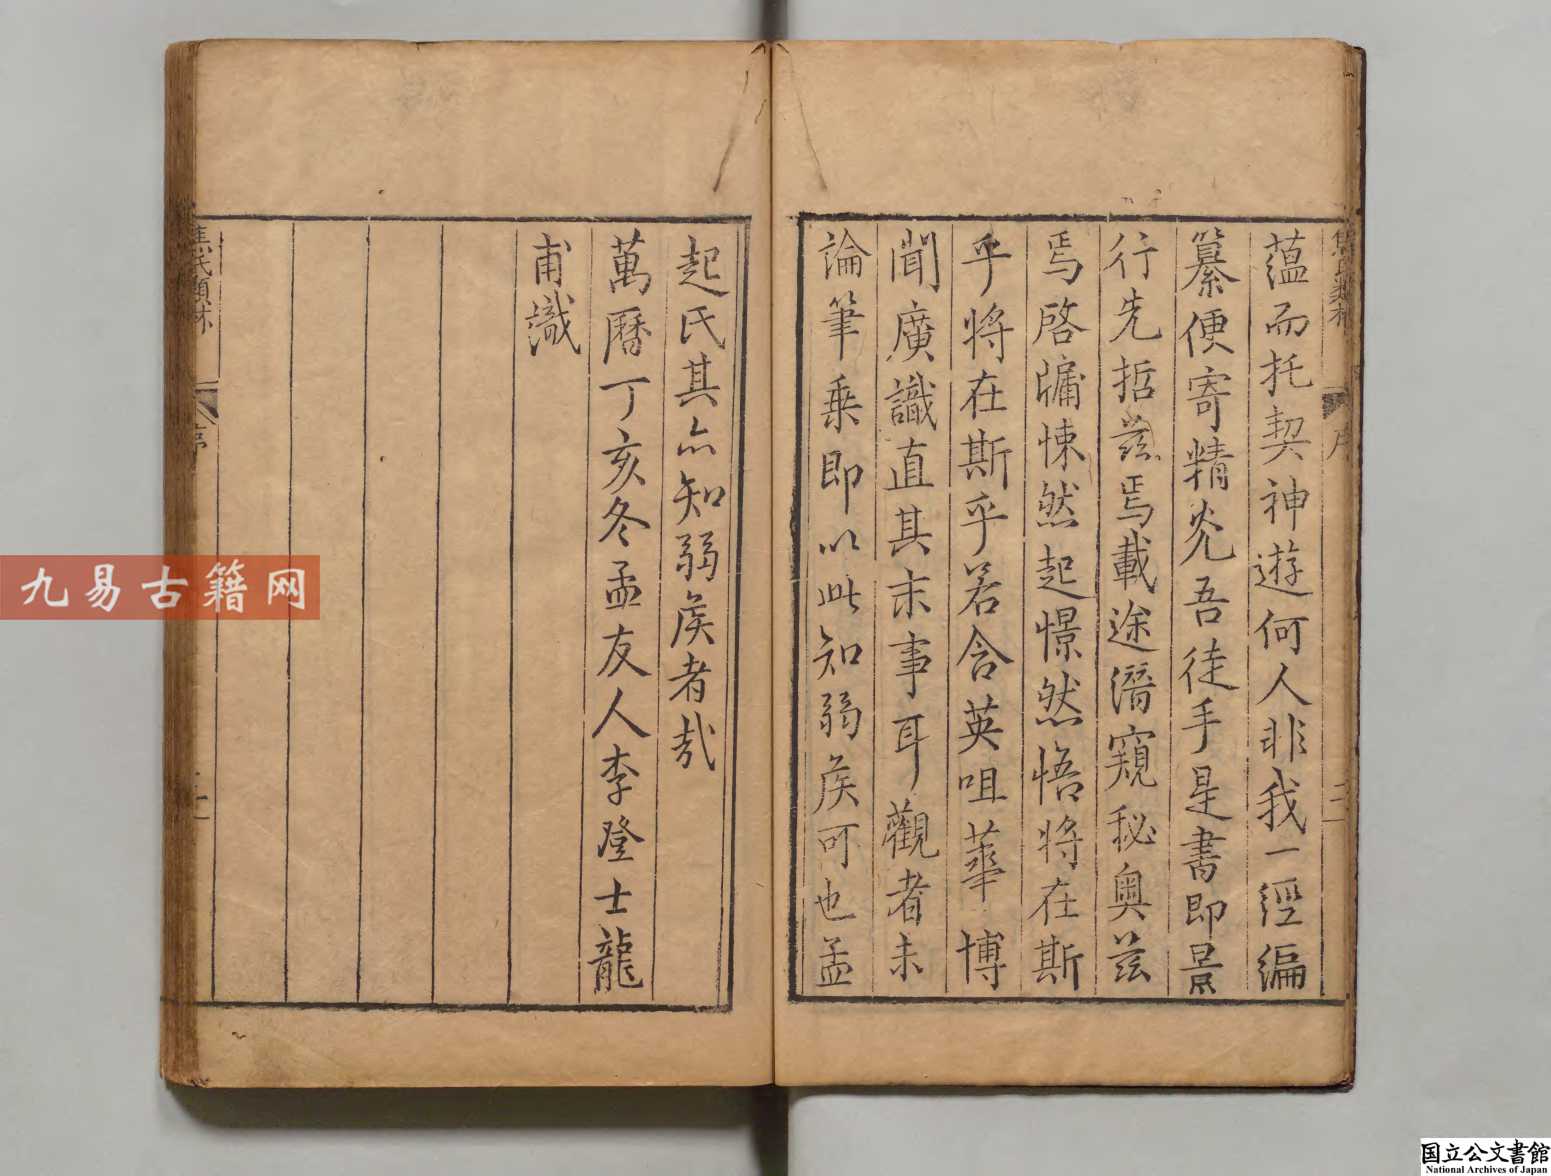 焦氏類林
序
蕰而托契神遊何人非我一經編
纂便寄精光吾徒手是書即景
行先哲兹焉載途潛窺秘奧兹
焉啓牖悚然起憬然悟將在斯
乎將在斯乎若含英咀華博
聞廣識直其末事耳觀者未
論筆乗即以此知弱侯可也孟
起氏其亦知弱侯者哉
萬曆丁亥冬孟友人李登士龍
甫識
焦氏類林
序
九易古籍网
国立公文書館
National Archives of Japan